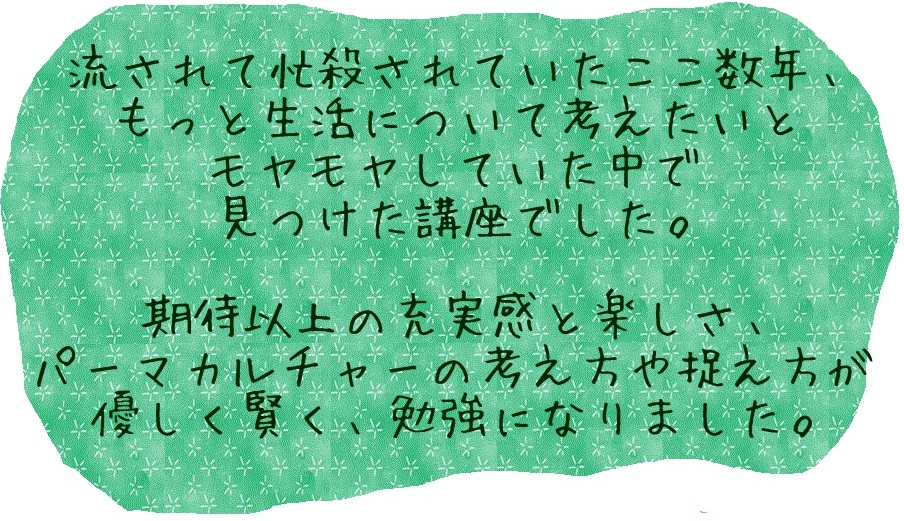 流されて忙殺されていたここ数年、
もっと生活について考えたいと
モヤモヤしていた中で
見つけた講座でした。
期待以上の充実感と楽しさ、
パーマカルチャーの考え方や捉え方が
優しく賢く、勉強になりました。